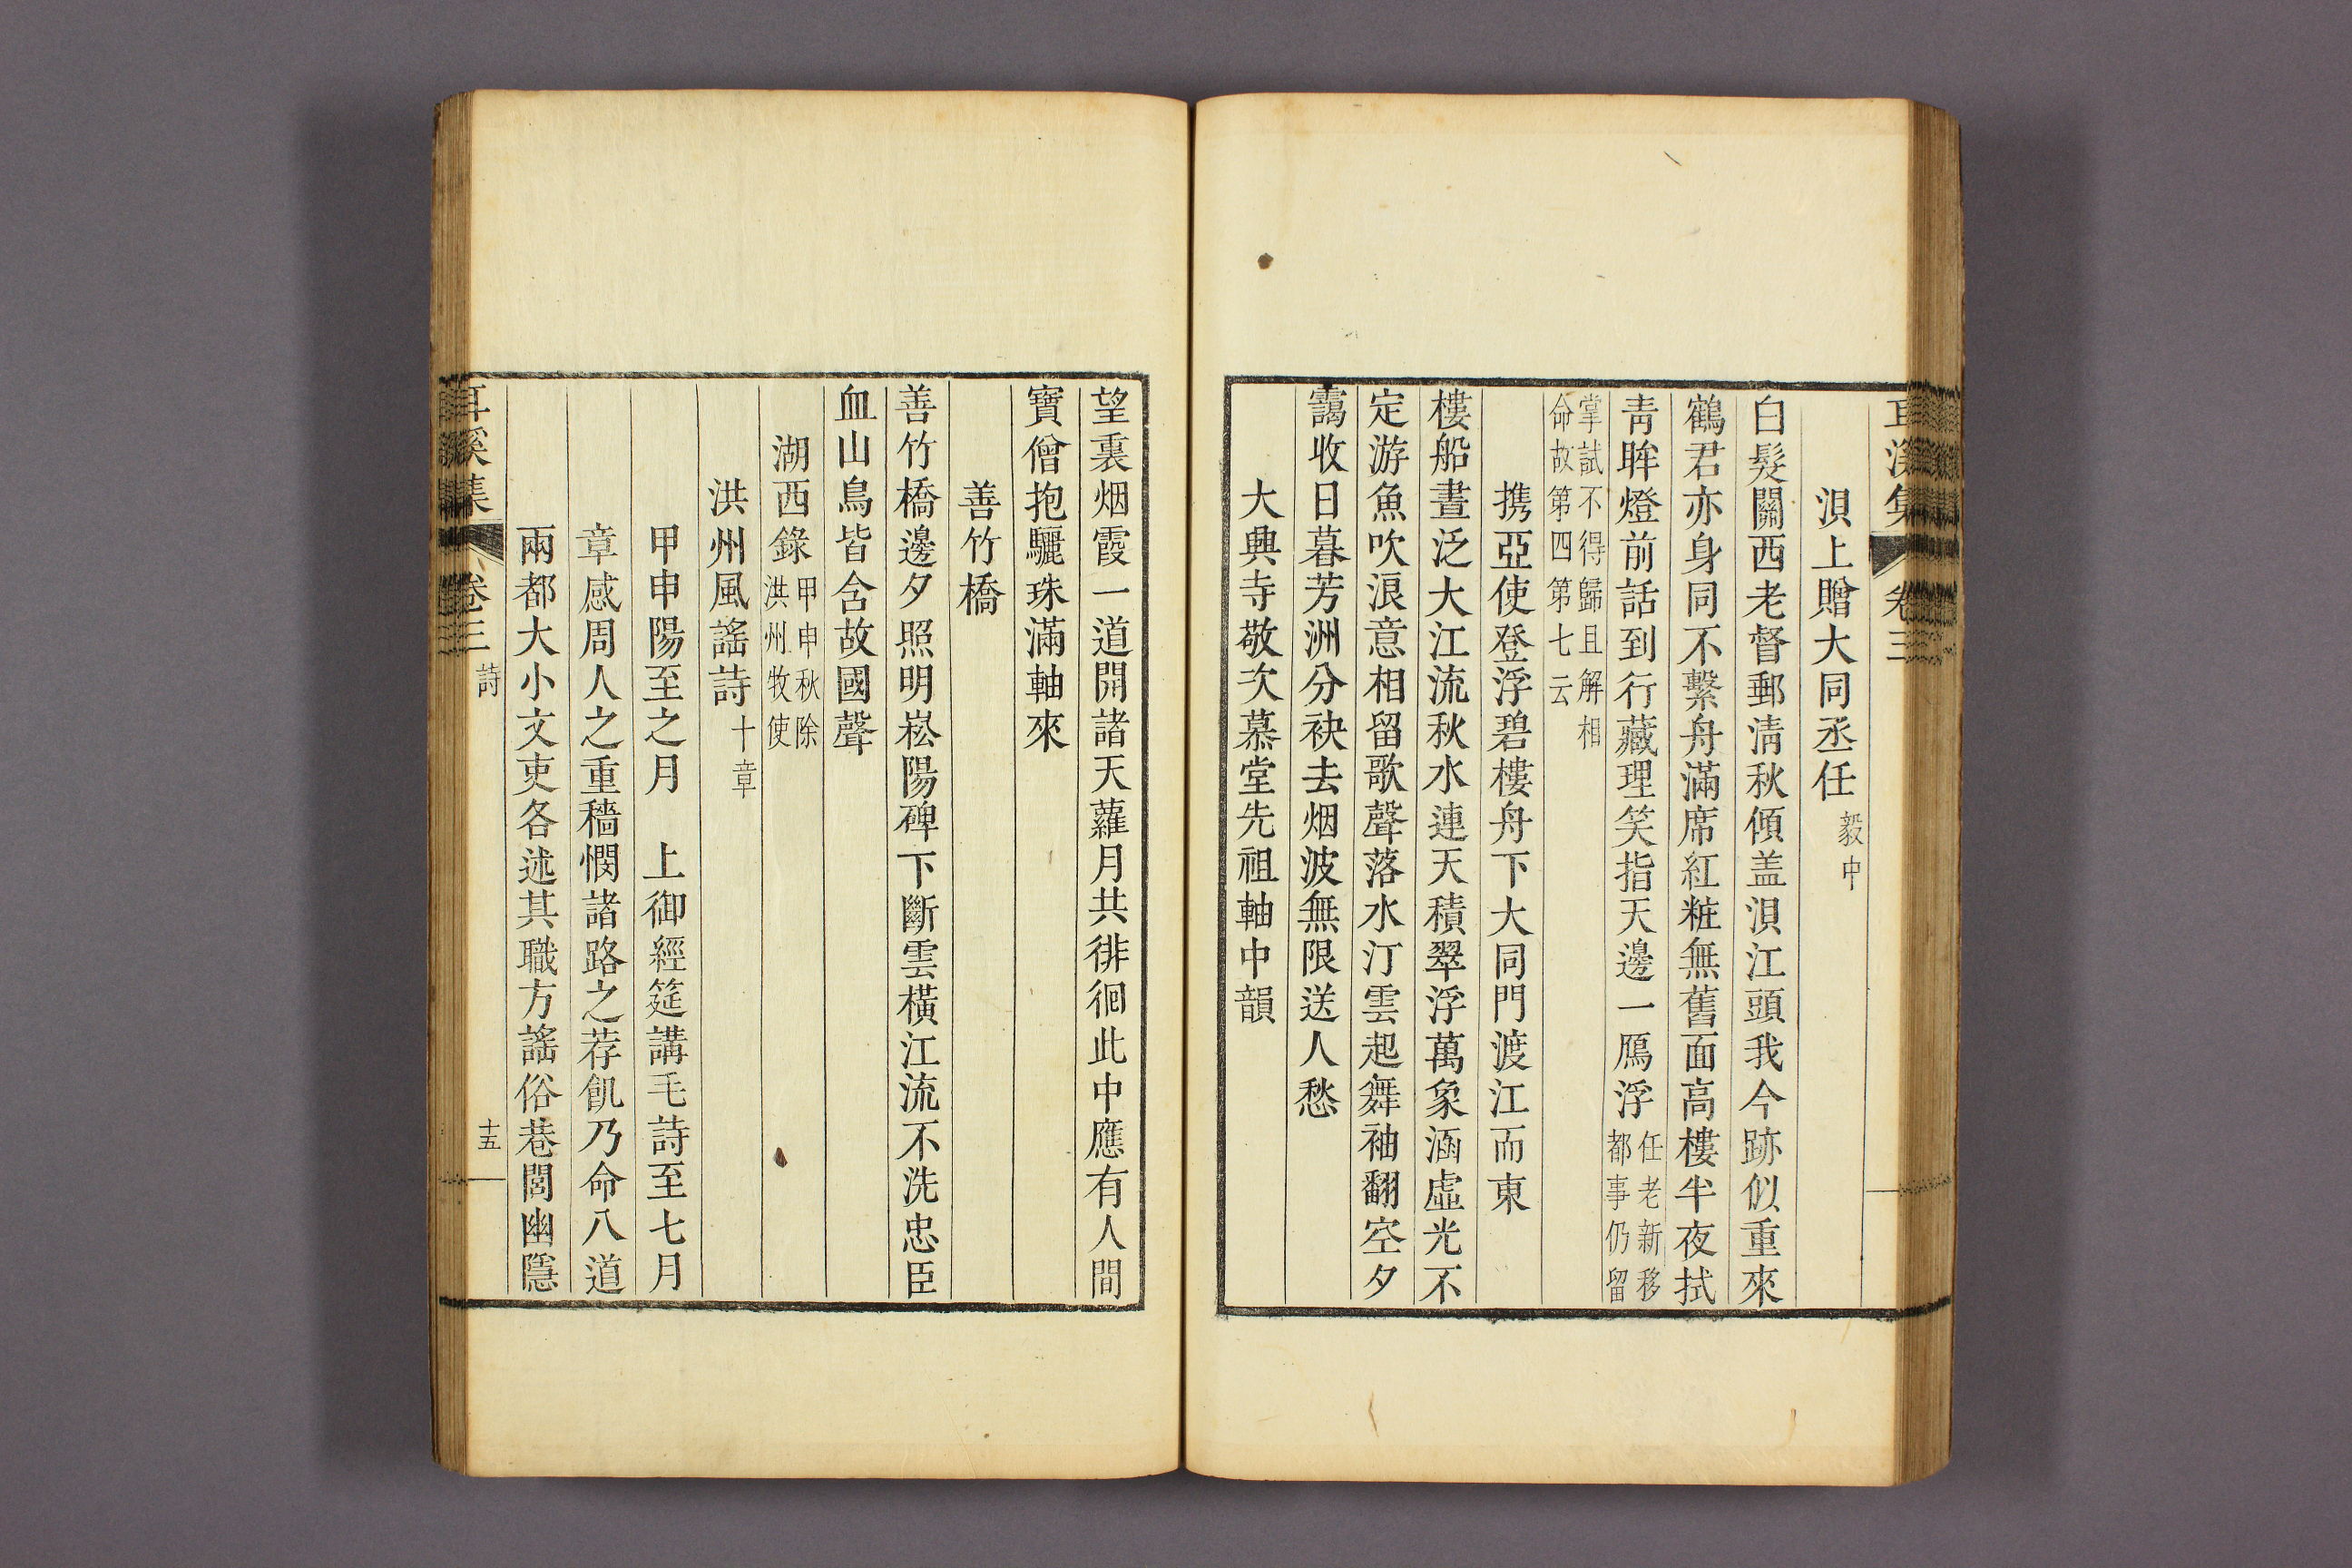 耳溪集 卷三
浿上贈大同丞任毅中
白髮關西老督郵淸秋傾盖浿江頭我今跡似重來
鶴君亦身同不繫舟滿席紅粧無舊面高樓半夜拭
靑眸燈前話到行藏理笑指天邊一鴈浮任老新移
都事仍留
掌試不得歸且解相
命故第四第七云
携亞使登浮碧樓舟下大同門渡江而東
樓船晝泛大江流秋水連天積翠浮萬象涵虛光不
定游魚吹浪意相留歌聲落水汀雲起舞袖翻空夕
靄收日暮芳洲分袂去烟波無限送人愁
大興寺敬次慕堂先祖軸中韻
望裏烟霞一道開諸天蘿月共徘徊此中應有人間
寶僧抱驪珠滿軸來
善竹橋
善竹橋邊夕照明崧陽碑下斷雲橫江流不洗忠臣
血山鳥皆含故國聲
湖西錄甲申秋除
洪州牧使
洪州風謠詩十章
甲申陽至之月 上御經筵講毛詩至七月
章感周人之重穡憫諸路之荐飢乃命八道
兩都大小文吏各述其職方謠俗巷閭幽隱
耳溪集 卷三 詩 十五